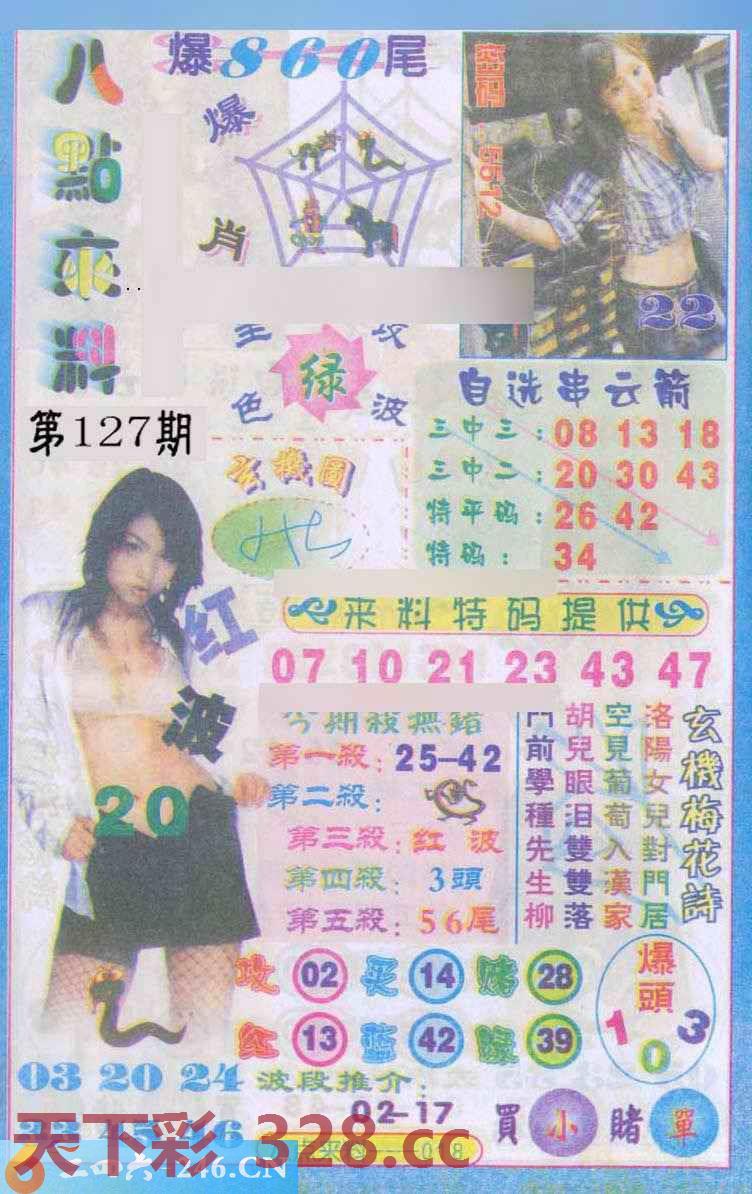 八點來料
爆860尾
爆肖
密码：5512
22
全攻
绿
色波
第127期
玄機圖
自选串云箭
三中三：08 13 18
三中二：20 30 43
特平码：26 42
特码：34
来料特码提供
07 10 21 23 43 47
红波
20
今期殺無錯
第一殺：25-42
第二殺：
第三殺：红波
第四殺：3頭
第五殺：56尾
玄機梅花詩
洛陽女兒對門居
空見葡萄入漢家
胡兒眼泪雙雙落
門前學種先生柳
攻 02 买 14 赌 28
红 13 蓝 42 绿 39
爆頭
1 0 3
03 20 24
波段推介：
02-17
買小賭單
天下彩 328.cc
二四六 246.CN